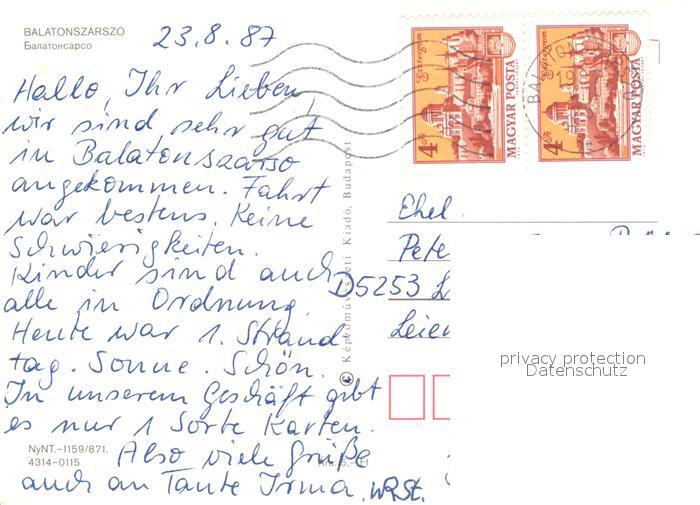 BALATONSZÁRSZO
Балатонсарсо
23.8.87
Hallo, Ihr Lieben,
wir sind sehr gut
in Balatonszarso
angekommen. Fahrt
war bestens. Keine
Schwierigkeiten.
Kinder sind auch
alle in Ordnung.
Heute war 1. Strand
tag. Sonne. Schön.
In unserem Geschäft gibt
es nur 1 Sorte Karten.
Also viele Grüße
auch an Tante Irma. WRSt.
NyNT.–1159/871.
4314–0115
© Képzőművészeti Kiadó, Budapest
Esztergom
4 Ft
MAGYAR POSTA
Esztergom
4 Ft
MAGYAR POSTA
Ehel.
Pete
D5253 L
Leien
privacy protection
Datenschutz